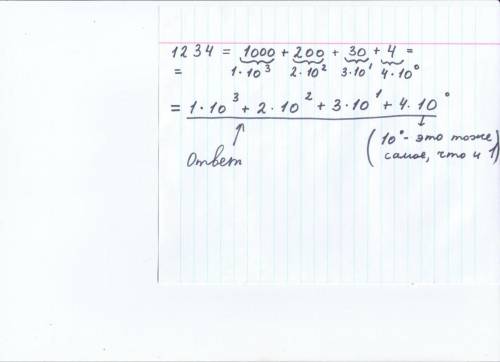 1234 = 1000 + 200 + 30 + 4 =
= 1·10³ 2·10² 3·10¹ 4·10⁰
= 1·10³ + 2·10² + 3·10¹ + 4·10⁰
Ответ
(10⁰ - это тоже
самое, что и 1)